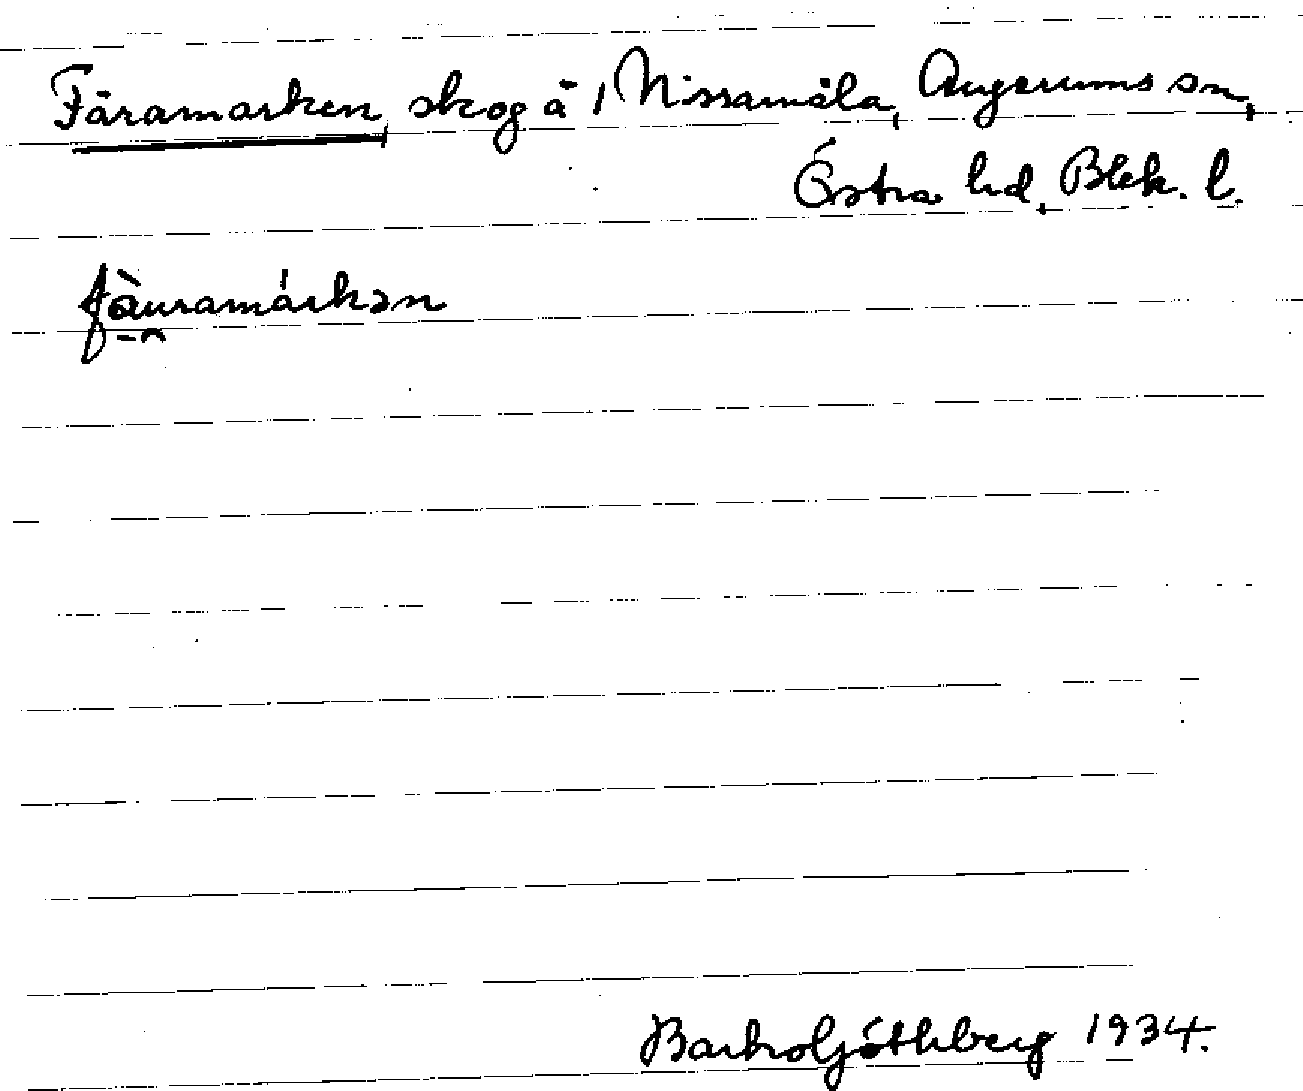 Fåramarken, skog å 1 Nissamåla, Augerums sn,
Östra hd, Blek. l.
fàuramárkən
1934.